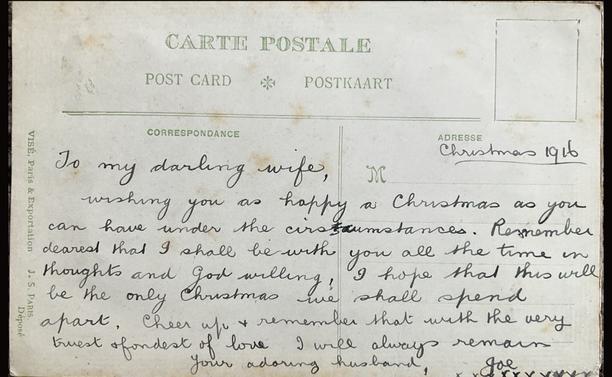 CARTE POSTALE
POST CARD ✻ POSTKAART
CORRESPONDANCE
ADRESSE
M
VISÉ, Paris & Exportation J. S. PARIS
Déposé
Christmas 1916
To my darling wife,
wishing you as happy a Christmas as you
can have under the circumstances. Remember
dearest that I shall be with you all the time in
thoughts and God willing, I hope that this will
be the only Christmas we shall spend
apart. Cheer up & remember that with the very
truest & fondest of love I will always remain
Your adoring husband, Joe